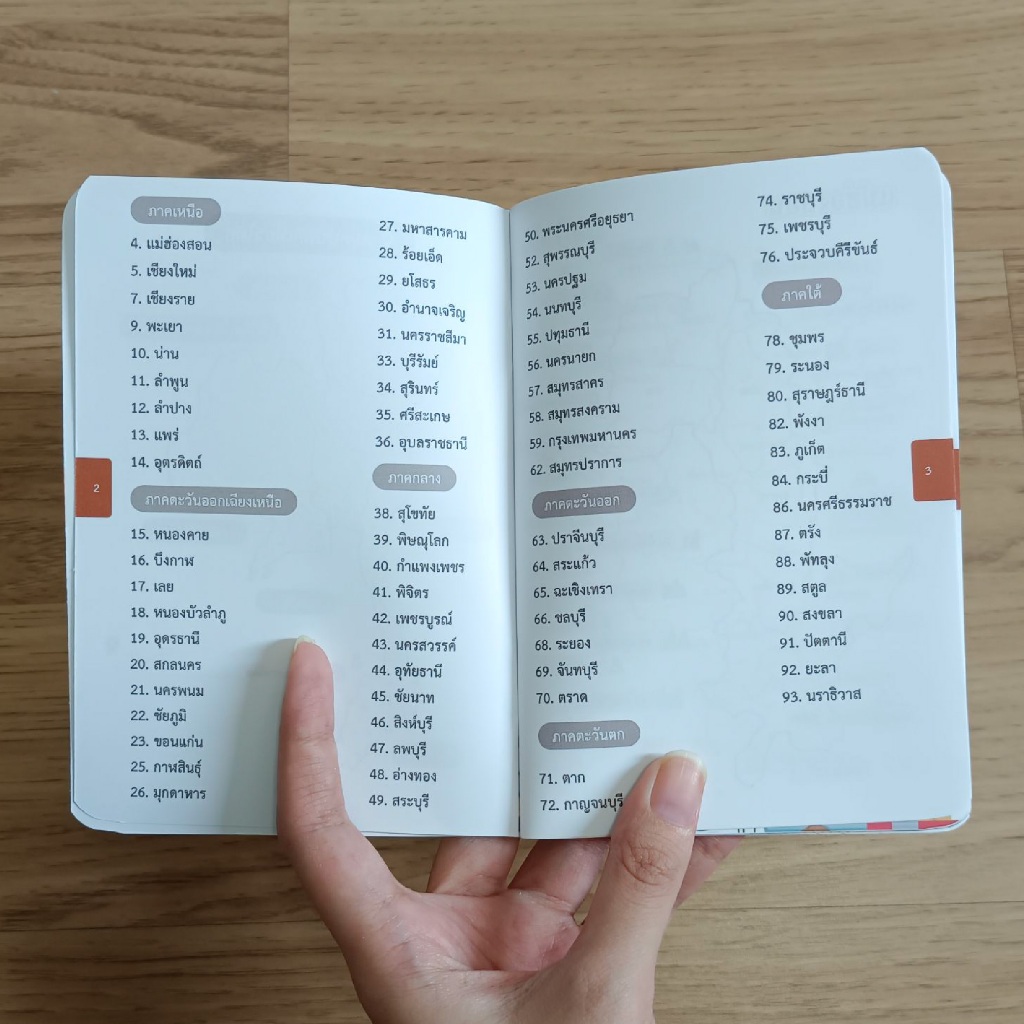 ภาคเหนือ
4. แม่ฮ่องสอน
5. เชียงใหม่
7. เชียงราย
9. พะเยา
10. น่าน
11. ลำพูน
12. ลำปาง
13. แพร่
14. อุตรดิตถ์
ภาคตะวันออกเฉียงเหนือ
15. หนองคาย
16. บึงกาฬ
17. เลย
18. หนองบัวลำภู
19. อุดรธานี
20. สกลนคร
21. นครพนม
22. ชัยภูมิ
23. ขอนแก่น
25. กาฬสินธุ์
26. มุกดาหาร
27. มหาสารคาม
28. ร้อยเอ็ด
29. ยโสธร
30. อำนาจเจริญ
31. นครราชสีมา
33. บุรีรัมย์
34. สุรินทร์
35. ศรีสะเกษ
36. อุบลราชธานี
ภาคกลาง
38. สุโขทัย
39. พิษณุโลก
40. กำแพงเพชร
41. พิจิตร
42. เพชรบูรณ์
43. นครสวรรค์
44. อุทัยธานี
45. ชัยนาท
46. สิงห์บุรี
47. ลพบุรี
48. อ่างทอง
49. สระบุรี
2
50. พระนครศรีอยุธยา
52. สุพรรณบุรี
53. นครปฐม
54. นนทบุรี
55. ปทุมธานี
56. นครนายก
57. สมุทรสาคร
58. สมุทรสงคราม
59. กรุงเทพมหานคร
62. สมุทรปราการ
ภาคตะวันออก
63. ปราจีนบุรี
64. สระแก้ว
65. ฉะเชิงเทรา
66. ชลบุรี
68. ระยอง
69. จันทบุรี
70. ตราด
ภาคตะวันตก
71. ตาก
72. กาญจนบุรี
74. ราชบุรี
75. เพชรบุรี
76. ประจวบคีรีขันธ์
ภาคใต้
78. ชุมพร
79. ระนอง
80. สุราษฎร์ธานี
82. พังงา
83. ภูเก็ต
84. กระบี่
86. นครศรีธรรมราช
87. ตรัง
88. พัทลุง
89. สตูล
90. สงขลา
91. ปัตตานี
92. ยะลา
93. นราธิวาส
3